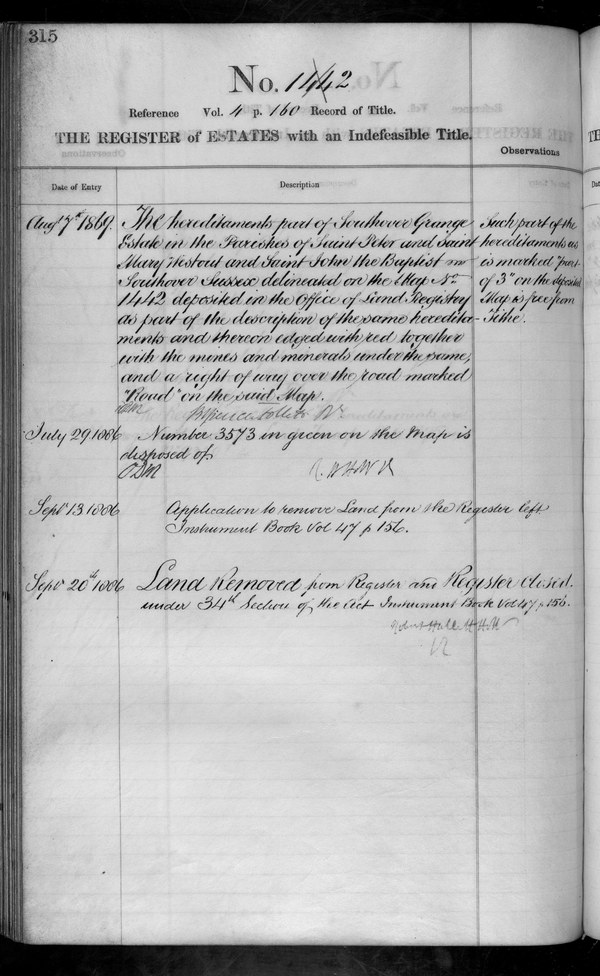 315
No. 1442
Reference Vol. 4 p. 160 Record of Title.
THE REGISTER of ESTATES with an Indefeasible Title.
Observations
Date of Entry
Description
Augt 7th 1869.
The hereditaments part of Southover Grange
Estate in the Parishes of Saint Peter and Saint
Mary Westout and Saint John the Baptist in
Southover Sussex delineated on the Map No
1442 deposited in the Office of Land Registry
as part of the description of the same heredita-
ments and thereon edged with red together
with the mines and minerals under the same,
and a right of way over the road marked
"Road" on the said Map.
Such part of the
hereditaments as
is marked "part
of 3" on the deposited
Map is free from
Tithe.
July 29 1886
Number 3573 in green on the Map is
disposed of
Septr 13 1886
Application to remove Land from the Register left
Instrument Book Vol 47 p 156.
Septr 20th 1886
Land Removed from Register and Register closed.
under 34th Section of the Act Instrument Book Vol 47 p 156.